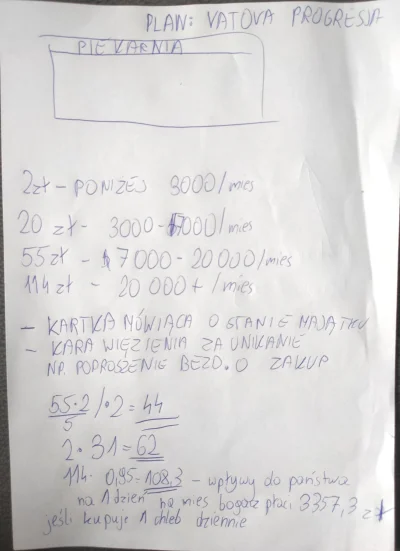 PLAN: VATOVA PROGRESJA
PIEKARNIA
2zł - PONIŻEJ 3000/mies
20 zł - 3000-7000/mies
55zł - 7000-20000/mies
114zł - 20000+/mies
- KARTKA MÓWIĄCA O STANIE MAJĄTKU
- KARA WIĘZIENIA ZA UNIKANIE
NP. POPROSZENIE BEZD. O ZAKUP
55·2/5 ·2=44
2·31=62
114·0,95=108,3 - wpływy do państwa
na 1 dzień na mies bogacz płaci 3357,3 zł
jeśli kupuje 1 chleb dziennie